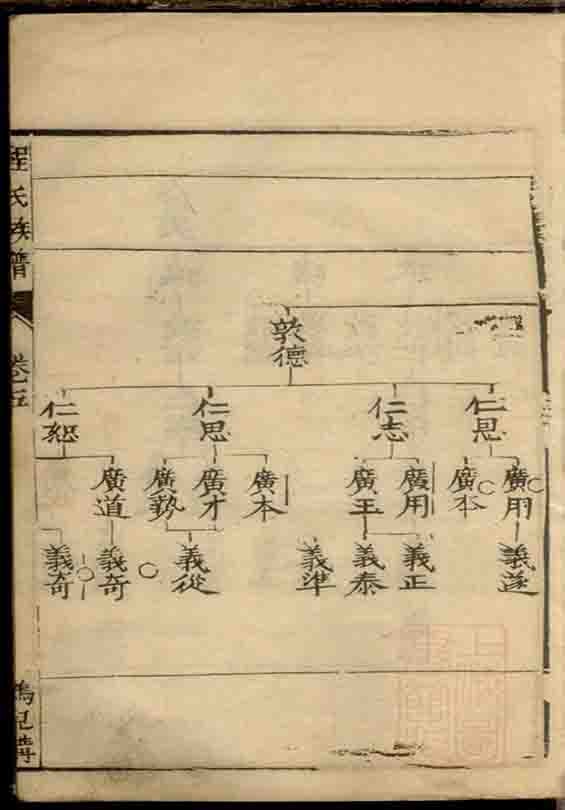 敦德
仁恩
仁志
仁思
仁恕
廣用
廣本
廣用
廣王
廣本
廣才
廣執
廣道
義遂
義正
義泰
義準
義從
義奇
義奇
程氏族譜
卷五